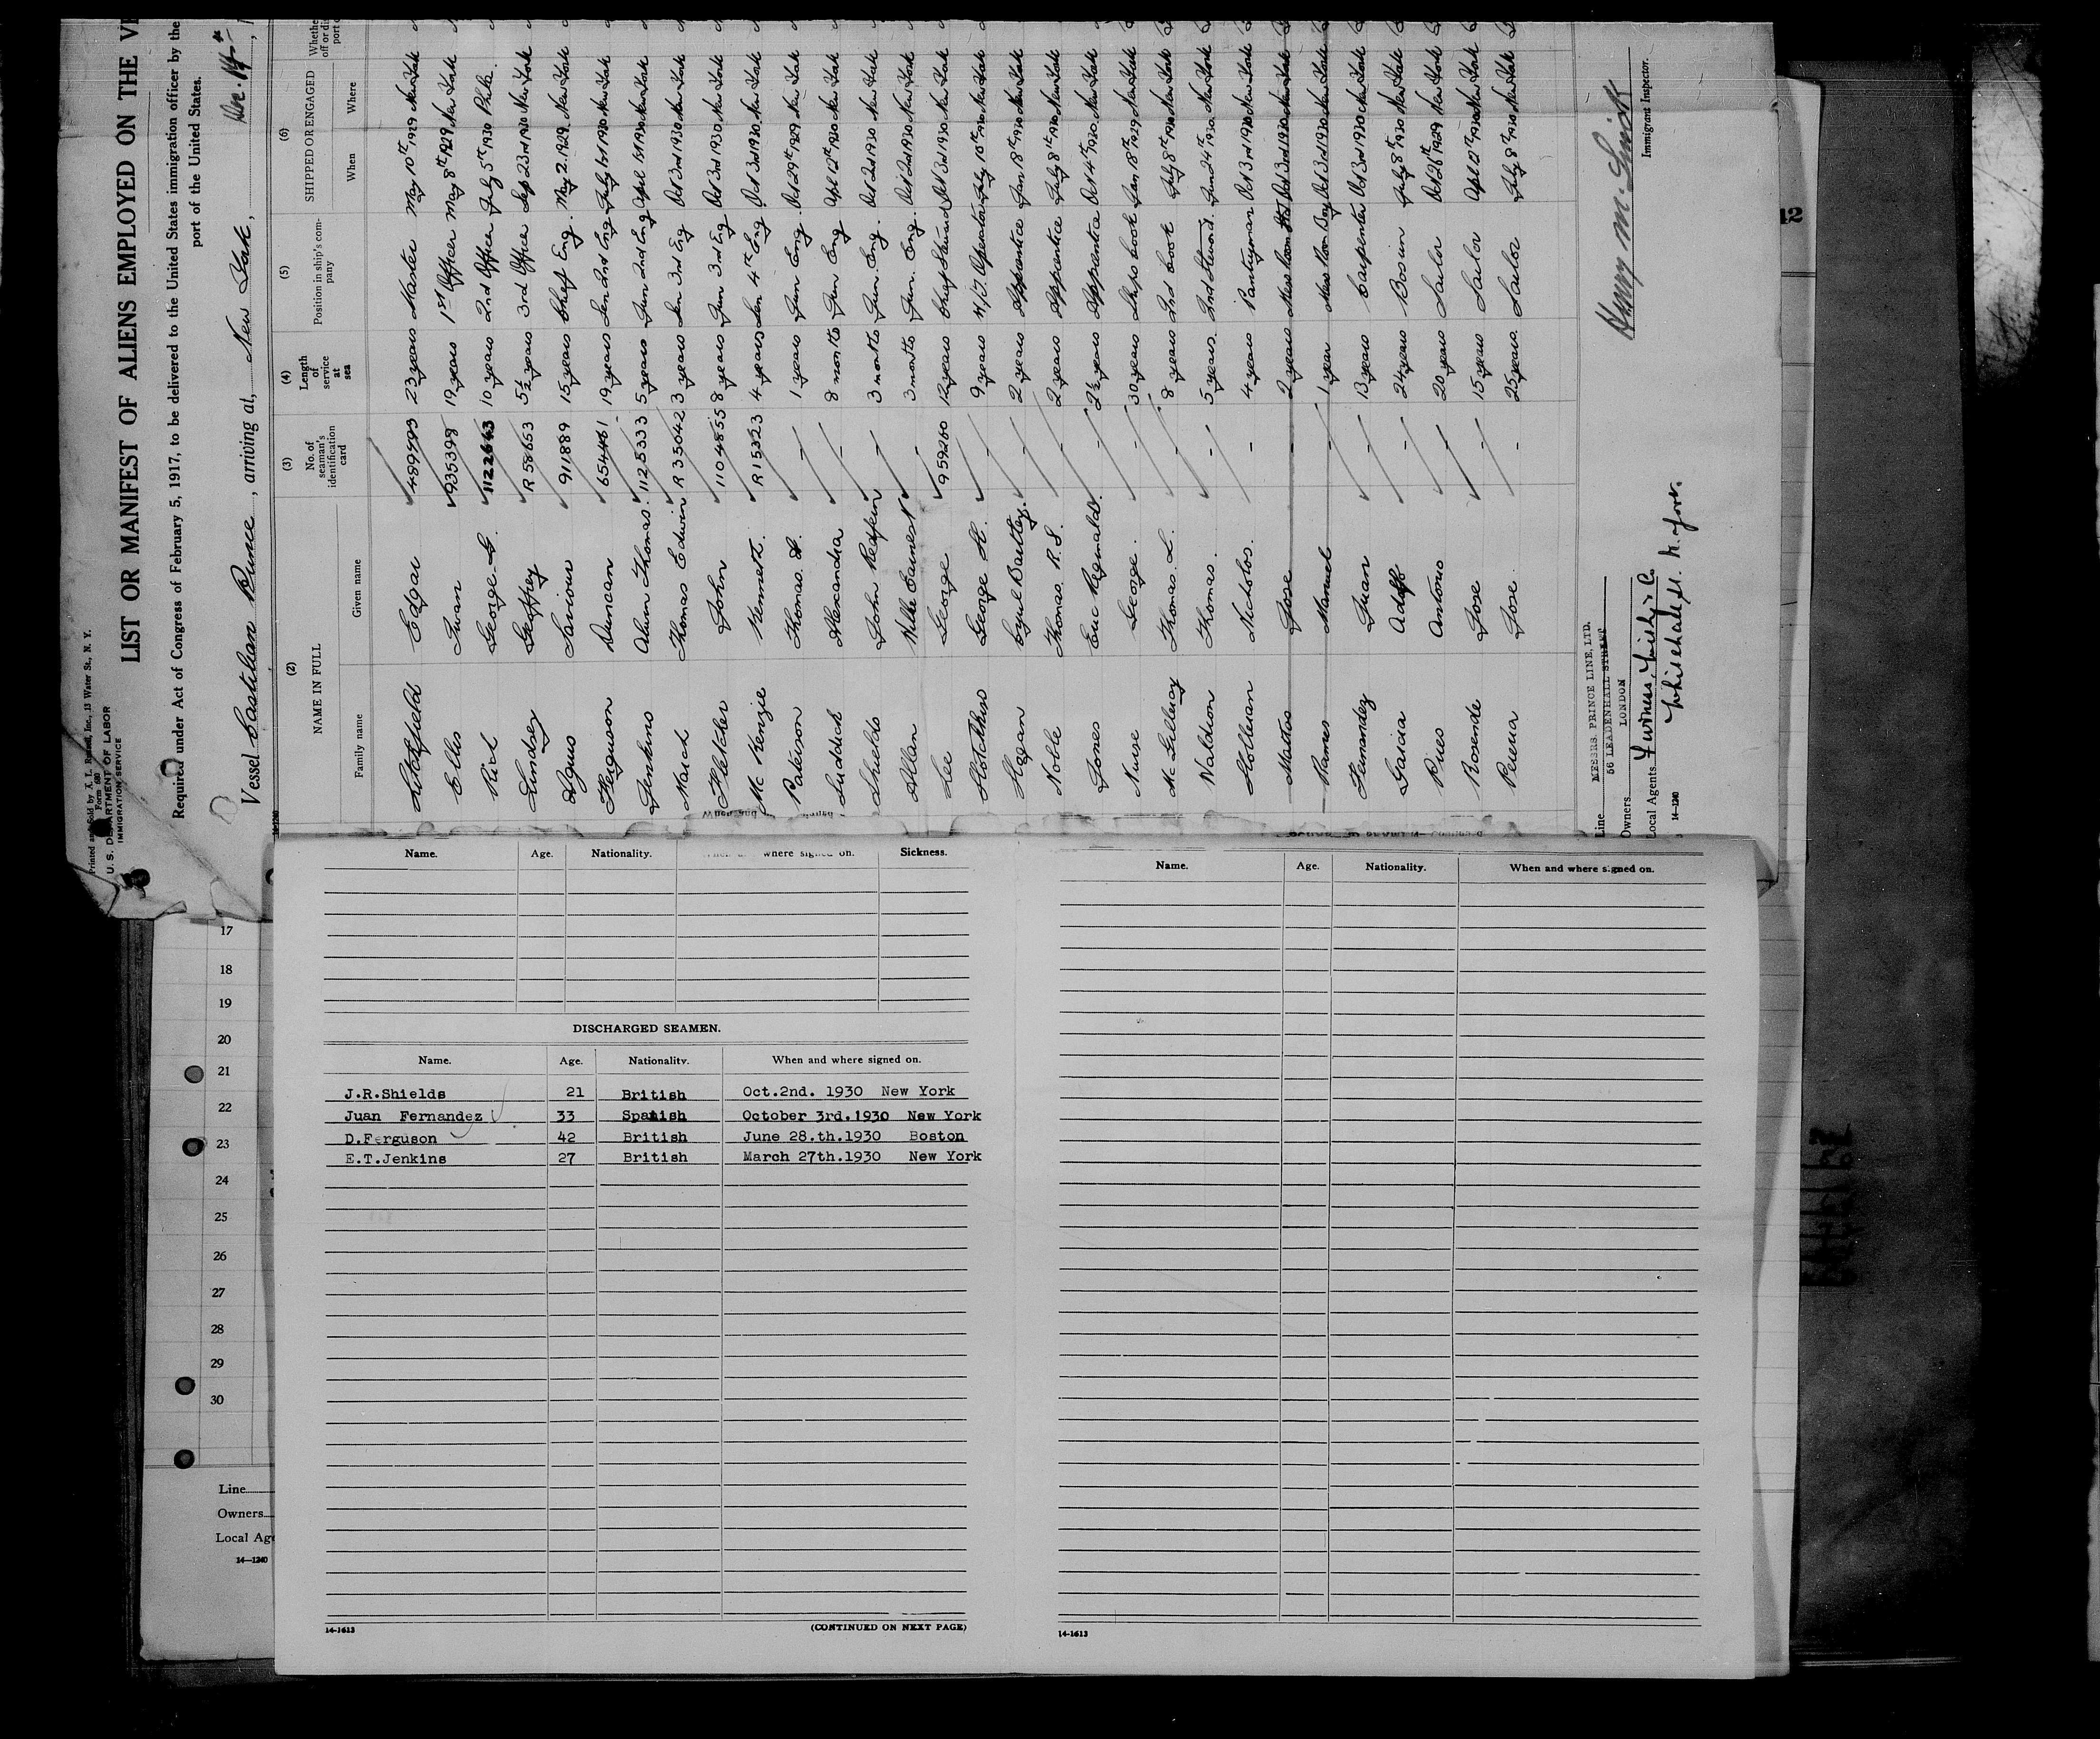 Printed and Sold by A. L. Russell, Inc., 13 Water St., N. Y.
Form 680
U. S. DEPARTMENT OF LABOR
IMMIGRATION SERVICE
LIST OR MANIFEST OF ALIENS EMPLOYED ON THE VE
Required under Act of Congress of February 5, 1917, to be delivered to the United States immigration officer by the
port of the United States.
Vessel Castilian Prince, arriving at, New York,
(2) (3) (4) (5) (6)
NAME IN FULL No. of seaman's identification card Length of service at sea Position in ship's company SHIPPED OR ENGAGED
Family name Given name When Where
Litchfield Edgar 489593 23 years Master May 10th 1929 New York
Ellis Ivan 935399 19 years 1st Officer May 8th 1929 New York
Rich George G. 1122643 10 years 2nd Officer July 5th 1930 Phila.
Lindsey Geoffrey R 58653 5½ years 3rd Officer Sep 23rd 1930 New York
Agius Saviour 911889 15 years Chief Eng. May 2. 1929 New York
Ferguson Duncan 654461 19 years Sen 2nd Eng July 1st 1930 New York
Jenkins Thomas 1125333 5 years Jun 2nd Eng April 1st 1930 New York
March Thomas Edwin R 35042 3 years Sen 3rd Eng Oct 3rd 1930 New York
Fletcher John 1104855 8 years Jun 3rd Eng Oct 3rd 1930 New York
McKenzie Kenneth. R15323 4 years Sen 4th Eng Oct 3rd 1930 New York
Paterson Thomas - 1 years Jun Eng. Oct 29th 1929 New York
Luddick Alexandra - 8 months Jun Eng Apl 12th 1930 New York
Shields John Redfein - 3 months Jun. Eng. Oct 2nd 1930 New York
Allan - 3 months Jun. Eng. Oct 2nd 1930 New York
Lee George 959260 12 years Chief Steward Oct 3rd 1930 New York
Hotchkiss George H. - 9 years W/T. Operator July 10th 1930 New York
Hogan Cyril Bartley. - 2 years Apprentice Jan 8th 1930 New York
Noble Thomas. R.S. - 2 years Apprentice July 8th 1930 New York
Jones Eric Reginald. - 2½ years Apprentice Oct 4th 1930 New York
Nurse George. - 30 years Ships Cook Jan 18th 1929 New York
McGillivay Thomas. L. - 8 years 2nd Cook July 8th 1930 New York
Waldron Thomas. - 5 years. 2nd Steward. June 24th 1930 New York
Hollean Nicholos. - 4 years Pantryman Oct 3rd 1930 New York
Mattos Jose - 2 years Oct 3rd 1930 New York
Ramos Manuel - 1 year Mess Room Boy Oct 3rd 1930 New York
Fernandez Juan - 13 years Carpenter Oct 3rd 1930 New York
Garcia Adolfo - 24 years Bosun July 8th 1930 New York
Pires Antonio - 20 years Sailor Oct 26th 1929 New York
Rosende Jose - 15 years Sailor Apl 10th 1930 New York
Pereira Jose - 25 years. Sailor July 8th 1930 New York
Line MESSRS. PRINCE LINE, LTD.
56 LEADENHALL STREET
Owners LONDON
Local Agents Furness, Withy & Co.
Whitehall St. N. York.
14-1240
Immigrant Inspector.
12
17
18
19
20
21
22
23
24
25
26
27
28
29
30
Line
Owners
Local Age
14-1240
Name. Age. Nationality. where signed on. Sickness.
DISCHARGED SEAMEN.
Name. Age. Nationality. When and where signed on.
J.R.Shields 21 British Oct.2nd. 1930 New York
Juan Fernandez 33 Spanish October 3rd.1930 New York
D.Ferguson 42 British June 28.th.1930 Boston
E.T.Jenkins 27 British March 27th.1930 New York
14-1613 (CONTINUED ON NEXT PAGE)
Name. Age. Nationality. When and where signed on.
14-1613